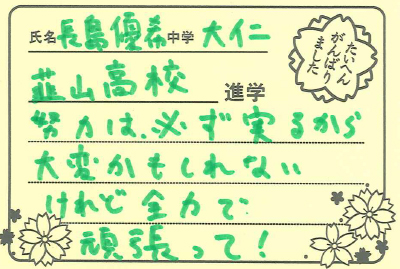 氏名 長島優希 中学 大仁
たいへん
がんばり
ました
韮山高校 進学
努力は、必ず実るから
大変かもしれない
けれど全力で
頑張って!